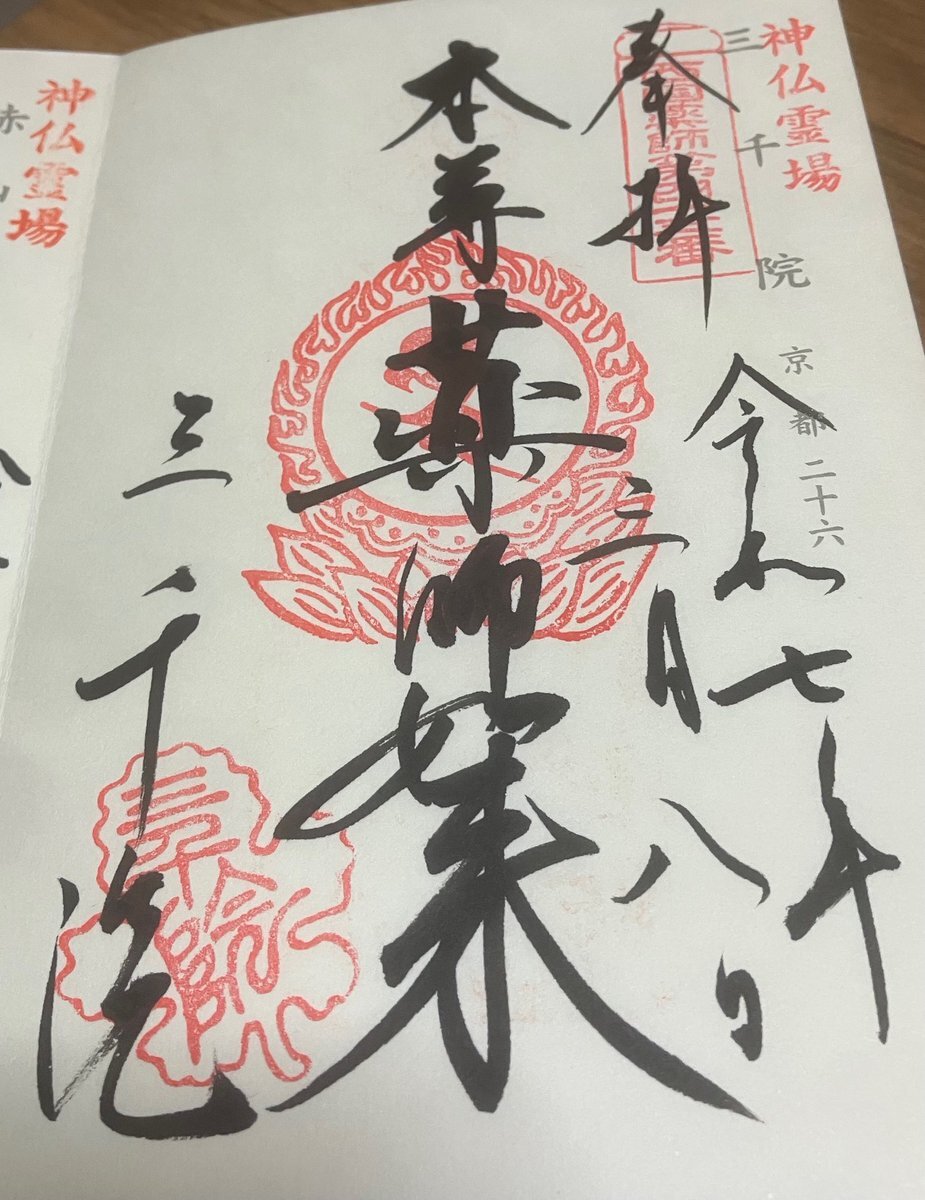 神仏霊場
三千院
京都二十六
奉拝
西国薬師第四十五番
令和七年
三月八日
本尊薬師如来
三千院
三千院
神仏霊場
赤山